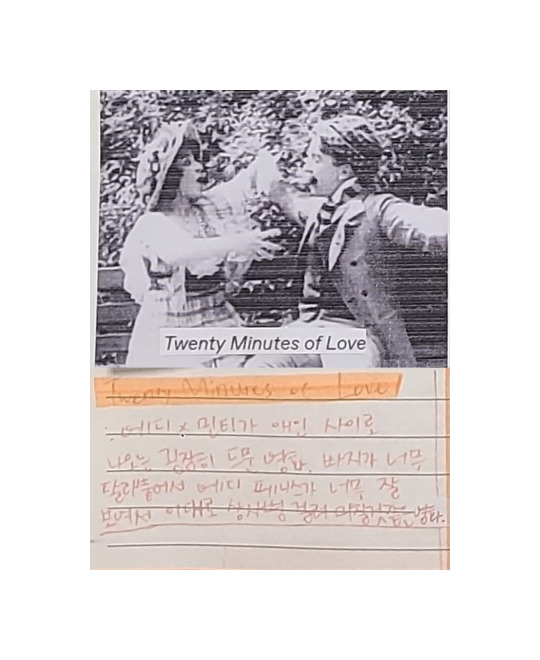 Twenty Minutes of Love
Twenty Minutes of Love
· 메디 × 민티가 애인 사이로
나오는 굉장히 드문 영화. 바지가 너무
달라붙어서 메디 페니스가 너무 잘
보여서 이대로 상사병 걸려 영화.